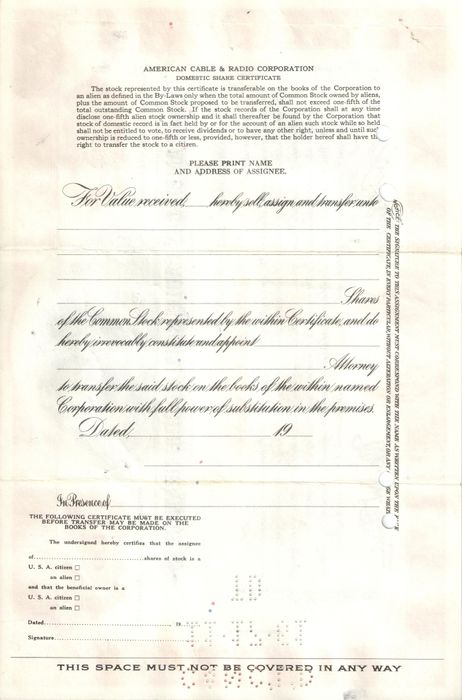 AMERICAN CABLE & RADIO CORPORATION
DOMESTIC SHARE CERTIFICATE
The stock represented by this certificate is transferable on the books of the Corporation to
an alien as defined in the By-Laws only when the total amount of Common Stock owned by aliens,
plus the amount of Common Stock proposed to be transferred, shall not exceed one-fifth of the
total outstanding Common Stock. If the stock records of the Corporation shall at any time
disclose one-fifth alien stock ownership and it shall thereafter be found by the Corporation that
stock of domestic record is in fact held by or for the account of an alien such stock while so held
shall not be entitled to vote, to receive dividends or to have any other right, unless and until such
ownership is reduced to one-fifth or less, provided, however, that the holder hereof shall have the
right to transfer the stock to a citizen.
PLEASE PRINT NAME
AND ADDRESS OF ASSIGNEE.
For Value received, hereby sell, assign and transfer unto
Shares
of the Common Stock represented by the within Certificate, and do
hereby irrevocably constitute and appoint
Attorney
to transfer the said stock on the books of the within named
Corporation with full power of substitution in the premises.
Dated, 19
NOTICE: THE SIGNATURE TO THIS ASSIGNMENT MUST CORRESPOND WITH THE NAME AS WRITTEN UPON THE
OF THE CERTIFICATE, IN EVERY PARTICULAR, WITHOUT ALTERATION OR ENLARGEMENT, OR ANY
In Presence of
THE FOLLOWING CERTIFICATE MUST BE EXECUTED
BEFORE TRANSFER MAY BE MADE ON THE
BOOKS OF THE CORPORATION.
The undersigned hereby certifies that the assignee
of..............................shares of stock is a
U. S. A. citizen
an alien
and that the beneficial owner is a
U. S. A. citizen
an alien
Dated.............................., 19......
Signature..............................
THIS SPACE MUST NOT BE COVERED IN ANY WAY